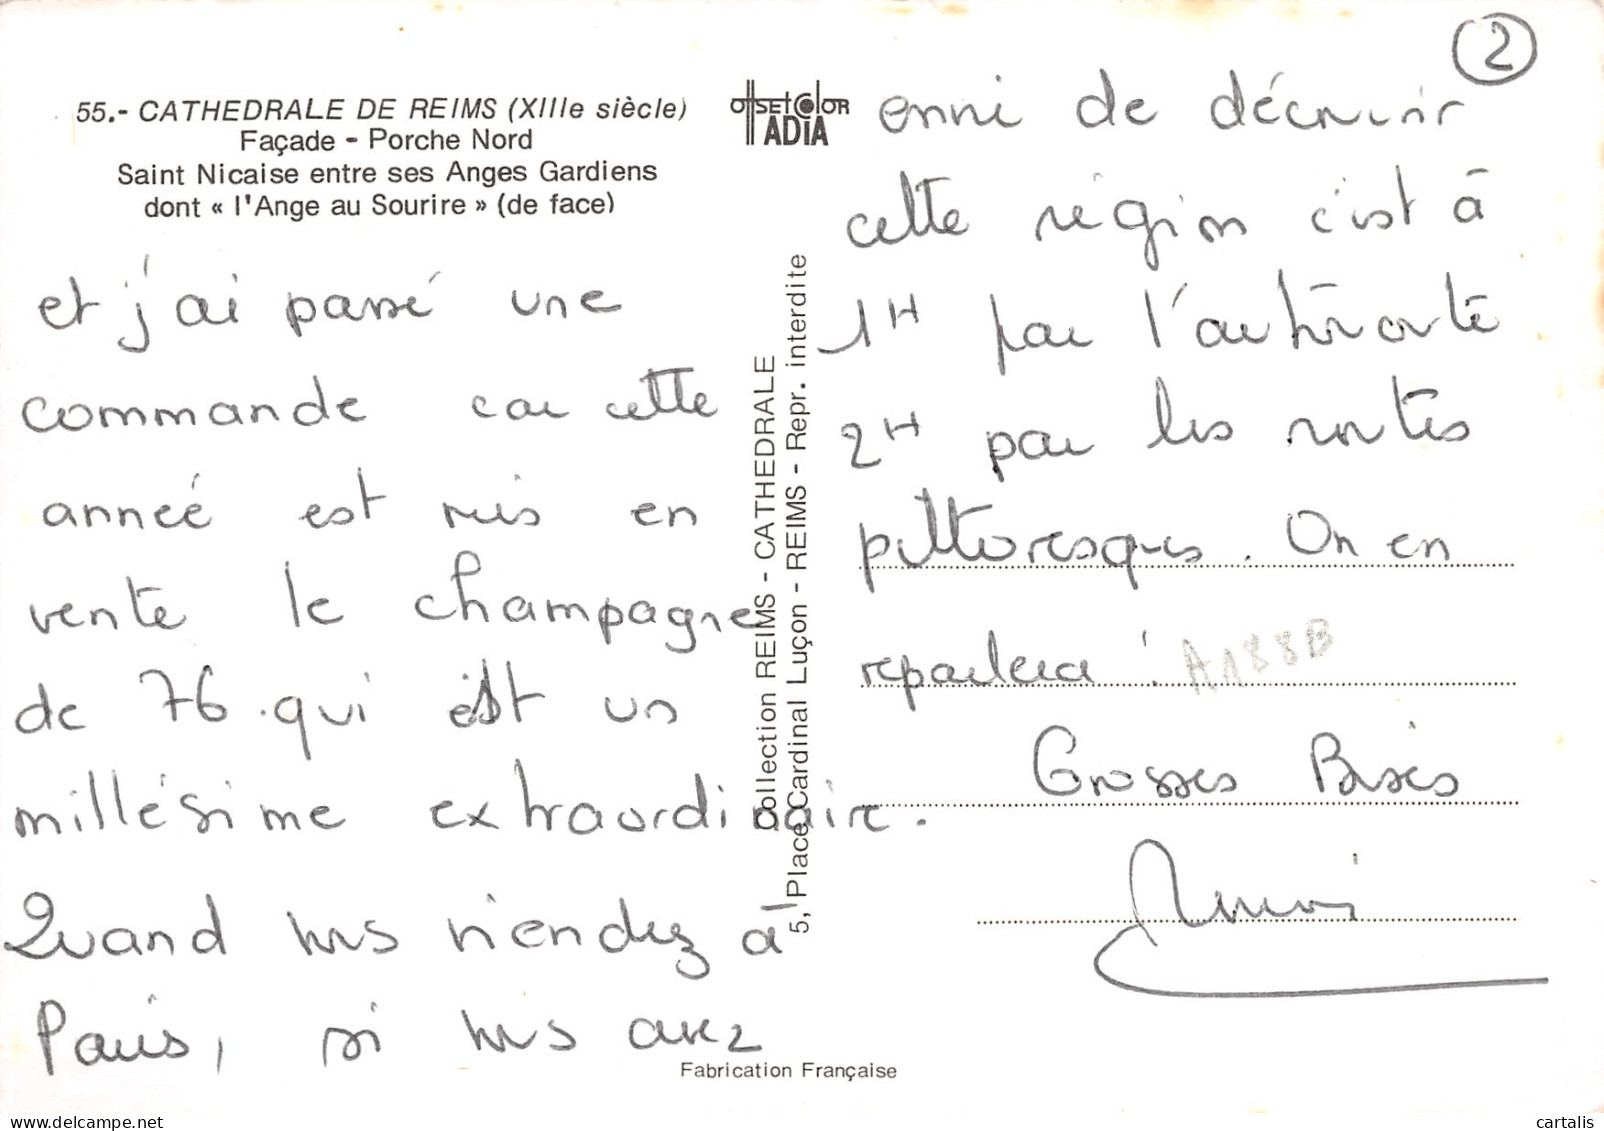 55.- CATHEDRALE DE REIMS (XIIIe siècle)
Façade - Porche Nord
Saint Nicaise entre ses Anges Gardiens
dont « l'Ange au Sourire » (de face)
et j'ai passé une
commande car cette
année est mis en
vente le champagne
de 76 qui est un
millésime extraordinaire.
Quand vous viendez à
Paris, si vous avez
Collection REIMS - CATHEDRALE
5, Place Cardinal Luçon - REIMS - Repr. interdite
OffsetColor
ADIA
2
envie de découvrir
cette région c'est à
1H par l'autoroute
2H par les routes
pittoresques. On en
reparlera !
A188B
Grosses Bises
Fabrication Française
cartalis